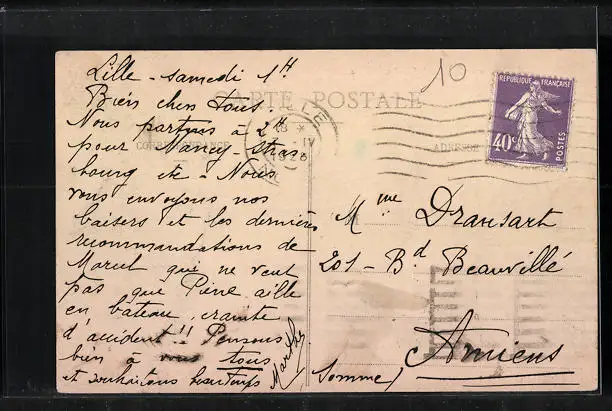 Lille - samedi 1H
Bien chers tous.
Nous partons à 2H
pour Nancy - Stras
bourg etc - Nous
vous envoyons nos
baisers et les dernières
recommandations de
Marcel qui ne veut
pas que Pierre aille
en bateau, crainte
d'accident!! Pensons
bien à vous tous
et souhaitons beau temps
Marthe
CARTE POSTALE
CORRESPONDANCE
ADRESSE
10
18 *
7 - IV
1928
REPUBLIQUE FRANÇAISE
40c
POSTES
Mme Dransart
201 - Bd Beauvillé
Amiens
Somme